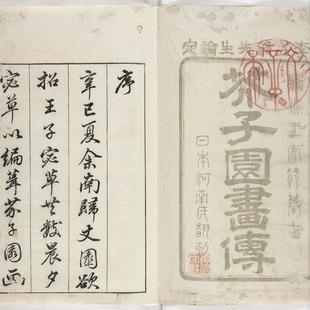 先生論定
芥子園畫傳
日本河南氏翻刻
序
辛巳夏余南歸丈園欲
招王子宓草共數晨夕
宓草以編葺芥子園画